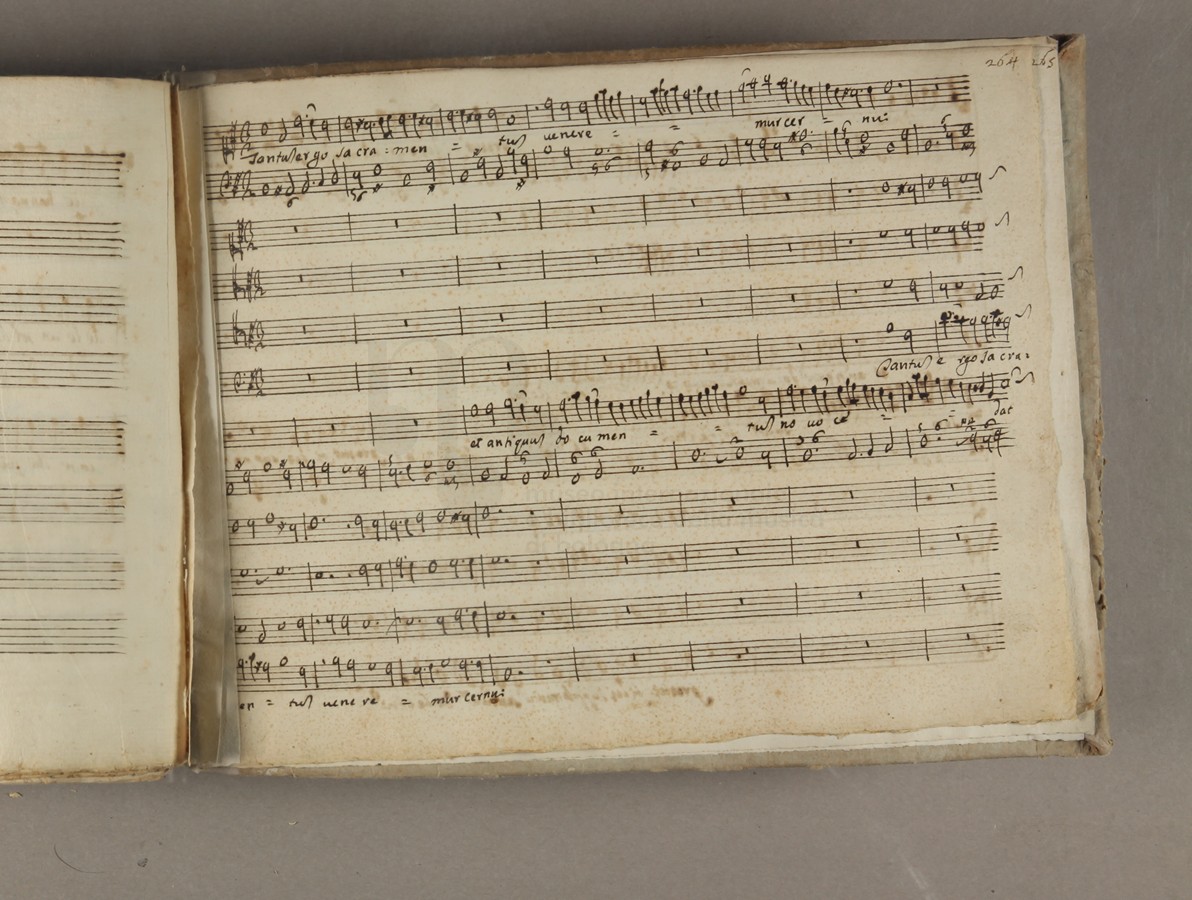 264 265
Tantuſ ergo ſa cra = men = tuſ uenere = = mur cer = nui
Tantuſ e rgo ſa cra=
et antiquuſ do cu men = = tuſ no uo ce = = dat
en = tuſ uene re = mur cernui